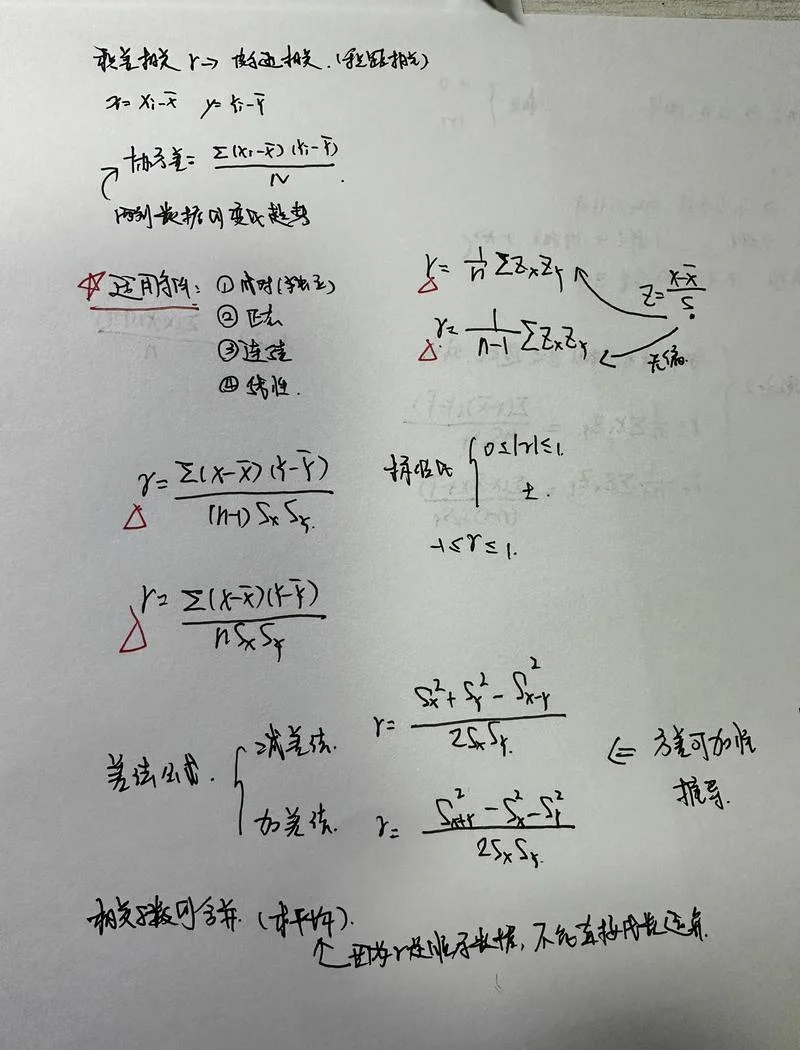 积差相关 r → 皮尔逊相关.(积距相关)
x = Xi-X̄  y = Yi-Ȳ
协方差 = Σ(Xi-X̄)(Yi-Ȳ) / N
两列数据的变化趋势
☆ 适用条件: ① 成对(学生)
② 正态
③ 连续
④ 线性.
r = 1/n ΣZxZy
Z = (X-X̄)/S
r = 1/(n-1) ΣZxZy
无偏.
r = Σ(X-X̄)(Y-Ȳ) / (n-1)SxSy.
0≤|r|≤1.
±.
-1≤r≤1.
r = Σ(X-X̄)(Y-Ȳ) / nSxSy
差法公式.
减差法. r = (Sx²+Sy²-S²x-y) / 2SxSy.
加差法. r = (S²x+y-Sx²-Sy²) / 2SxSy.
⇐ 方差可加性
推导.
相关系数的合并.(求平均).
因为r是顺序数据,不能直接代数运算.